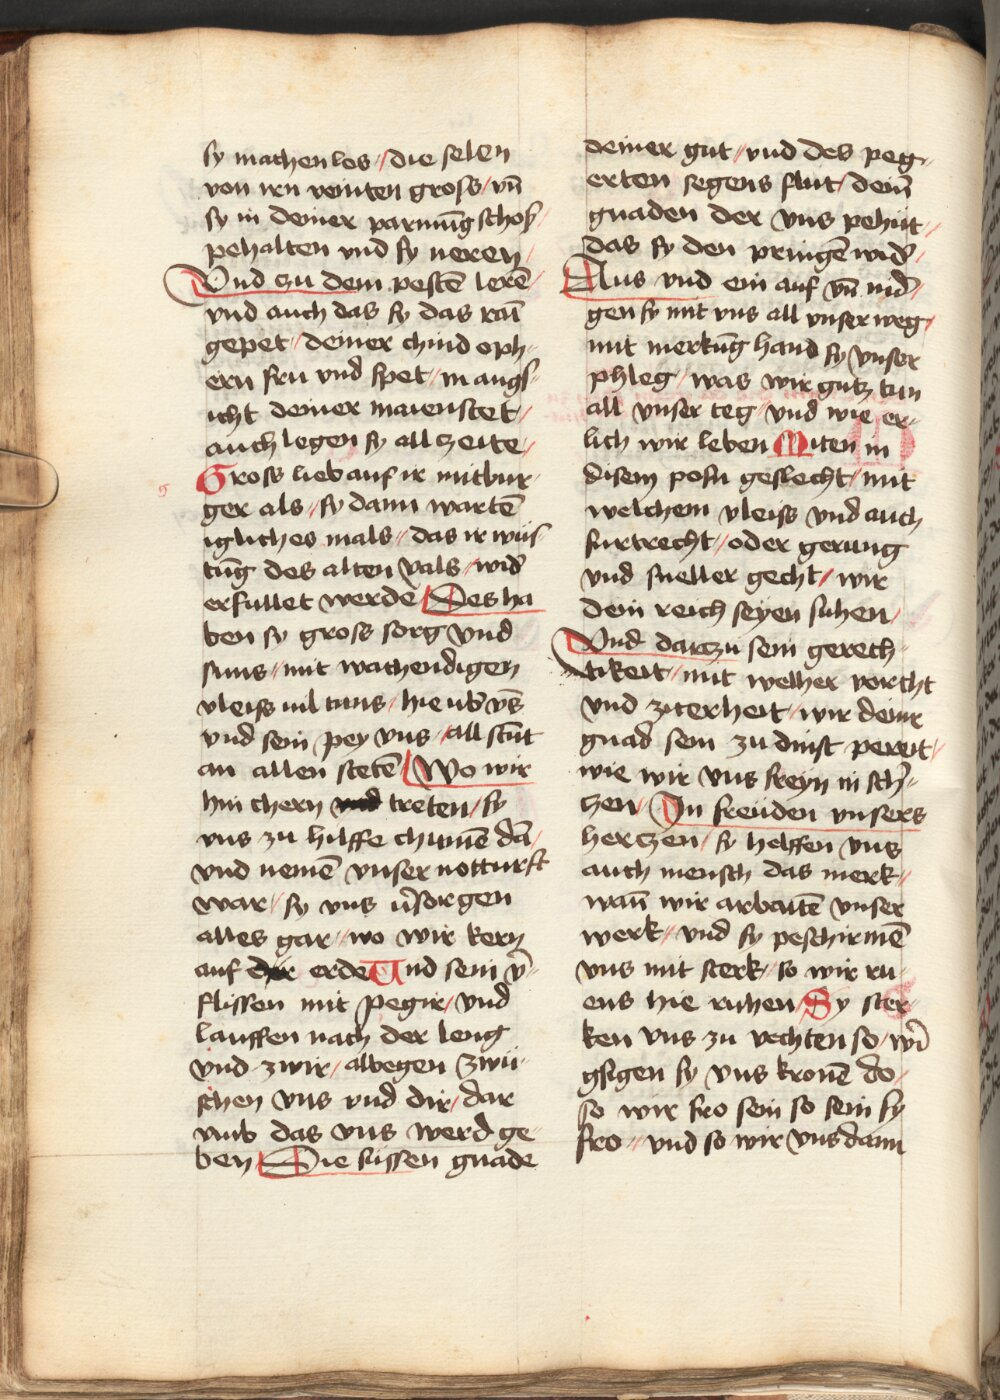 sy machen los / die selen
von irn veinten gross / vn̄
sy in deiner parmūg schoß /
pehalten vnd sy neren /
Vnd zu dem pestē lerē /
vnd auch das sy das rai
gepet / deiner chind oph-
ern fru vnd spet / in angs-
icht deiner maienstet /
auch legen sy all zeite /
Gross lieb auf ir mitbur-
ger als / sy dann wartē
igliches mals / das ir wüs-
tūg des alten vals / wid̄
erfullet werde Des ha
ben sy gross sorg vnd
suns / mit wachendigen
vleiss vil tuns / hie vb̄ vn̄s
vnd sein pey vns / all stūt
an allen stetē Wo wir
hin chern vnd treten / sy
vns zu hilffe chumē dā /
vnd nemē vnser notturft
war / sy vns v̄sorgen
alles gar / wo wir kern
auf der erde Und sein v̄-
flissen mit pegir / vnd
lauffen nach der leng
vnd zwir / albegen zwi-
schen vns vnd dir / dar
vmb das vns werd ge-
ben Die süssen gnade
deiner gut / vnd des peg-
erten segens flut / dein̄
gnaden der vns pehüt /
das sy den pringē wid̄ /
Aus vnd ein auf vn̄ nid̄ /
gen sy mit vns all vnser weg /
mit merkūg hand sy vnser
phleg / was wir gutz tun
all vnser teg / vnd wie er-
lich wir leben Miten in
disem posn geslecht / mit
welchem vleiss vnd auch
furtrecht / oder gerung
vnd sneller gecht / wir
dein reich seyen suhen /
Vnd darczu sein gerech-
tikeit / mit welher vorcht
vnd ziterheit / wir deinr
gnad sein zu dinst pereit /
wie wir vns freyn in sch̄-
czen / In freuden vnsers
herczen / sy helffen vns
auch mensch das merk /
wan̄ wir arbaitē vnser
werk / vnd sy peschirmē
vns mit sterk / so wir ru-
ens hie ruhen / Sy ster-
ken vns zu vechten so / wi
gsigen sy vns kronē do /
so wir fro sein so sein sy
fro / vnd so wir vns dann